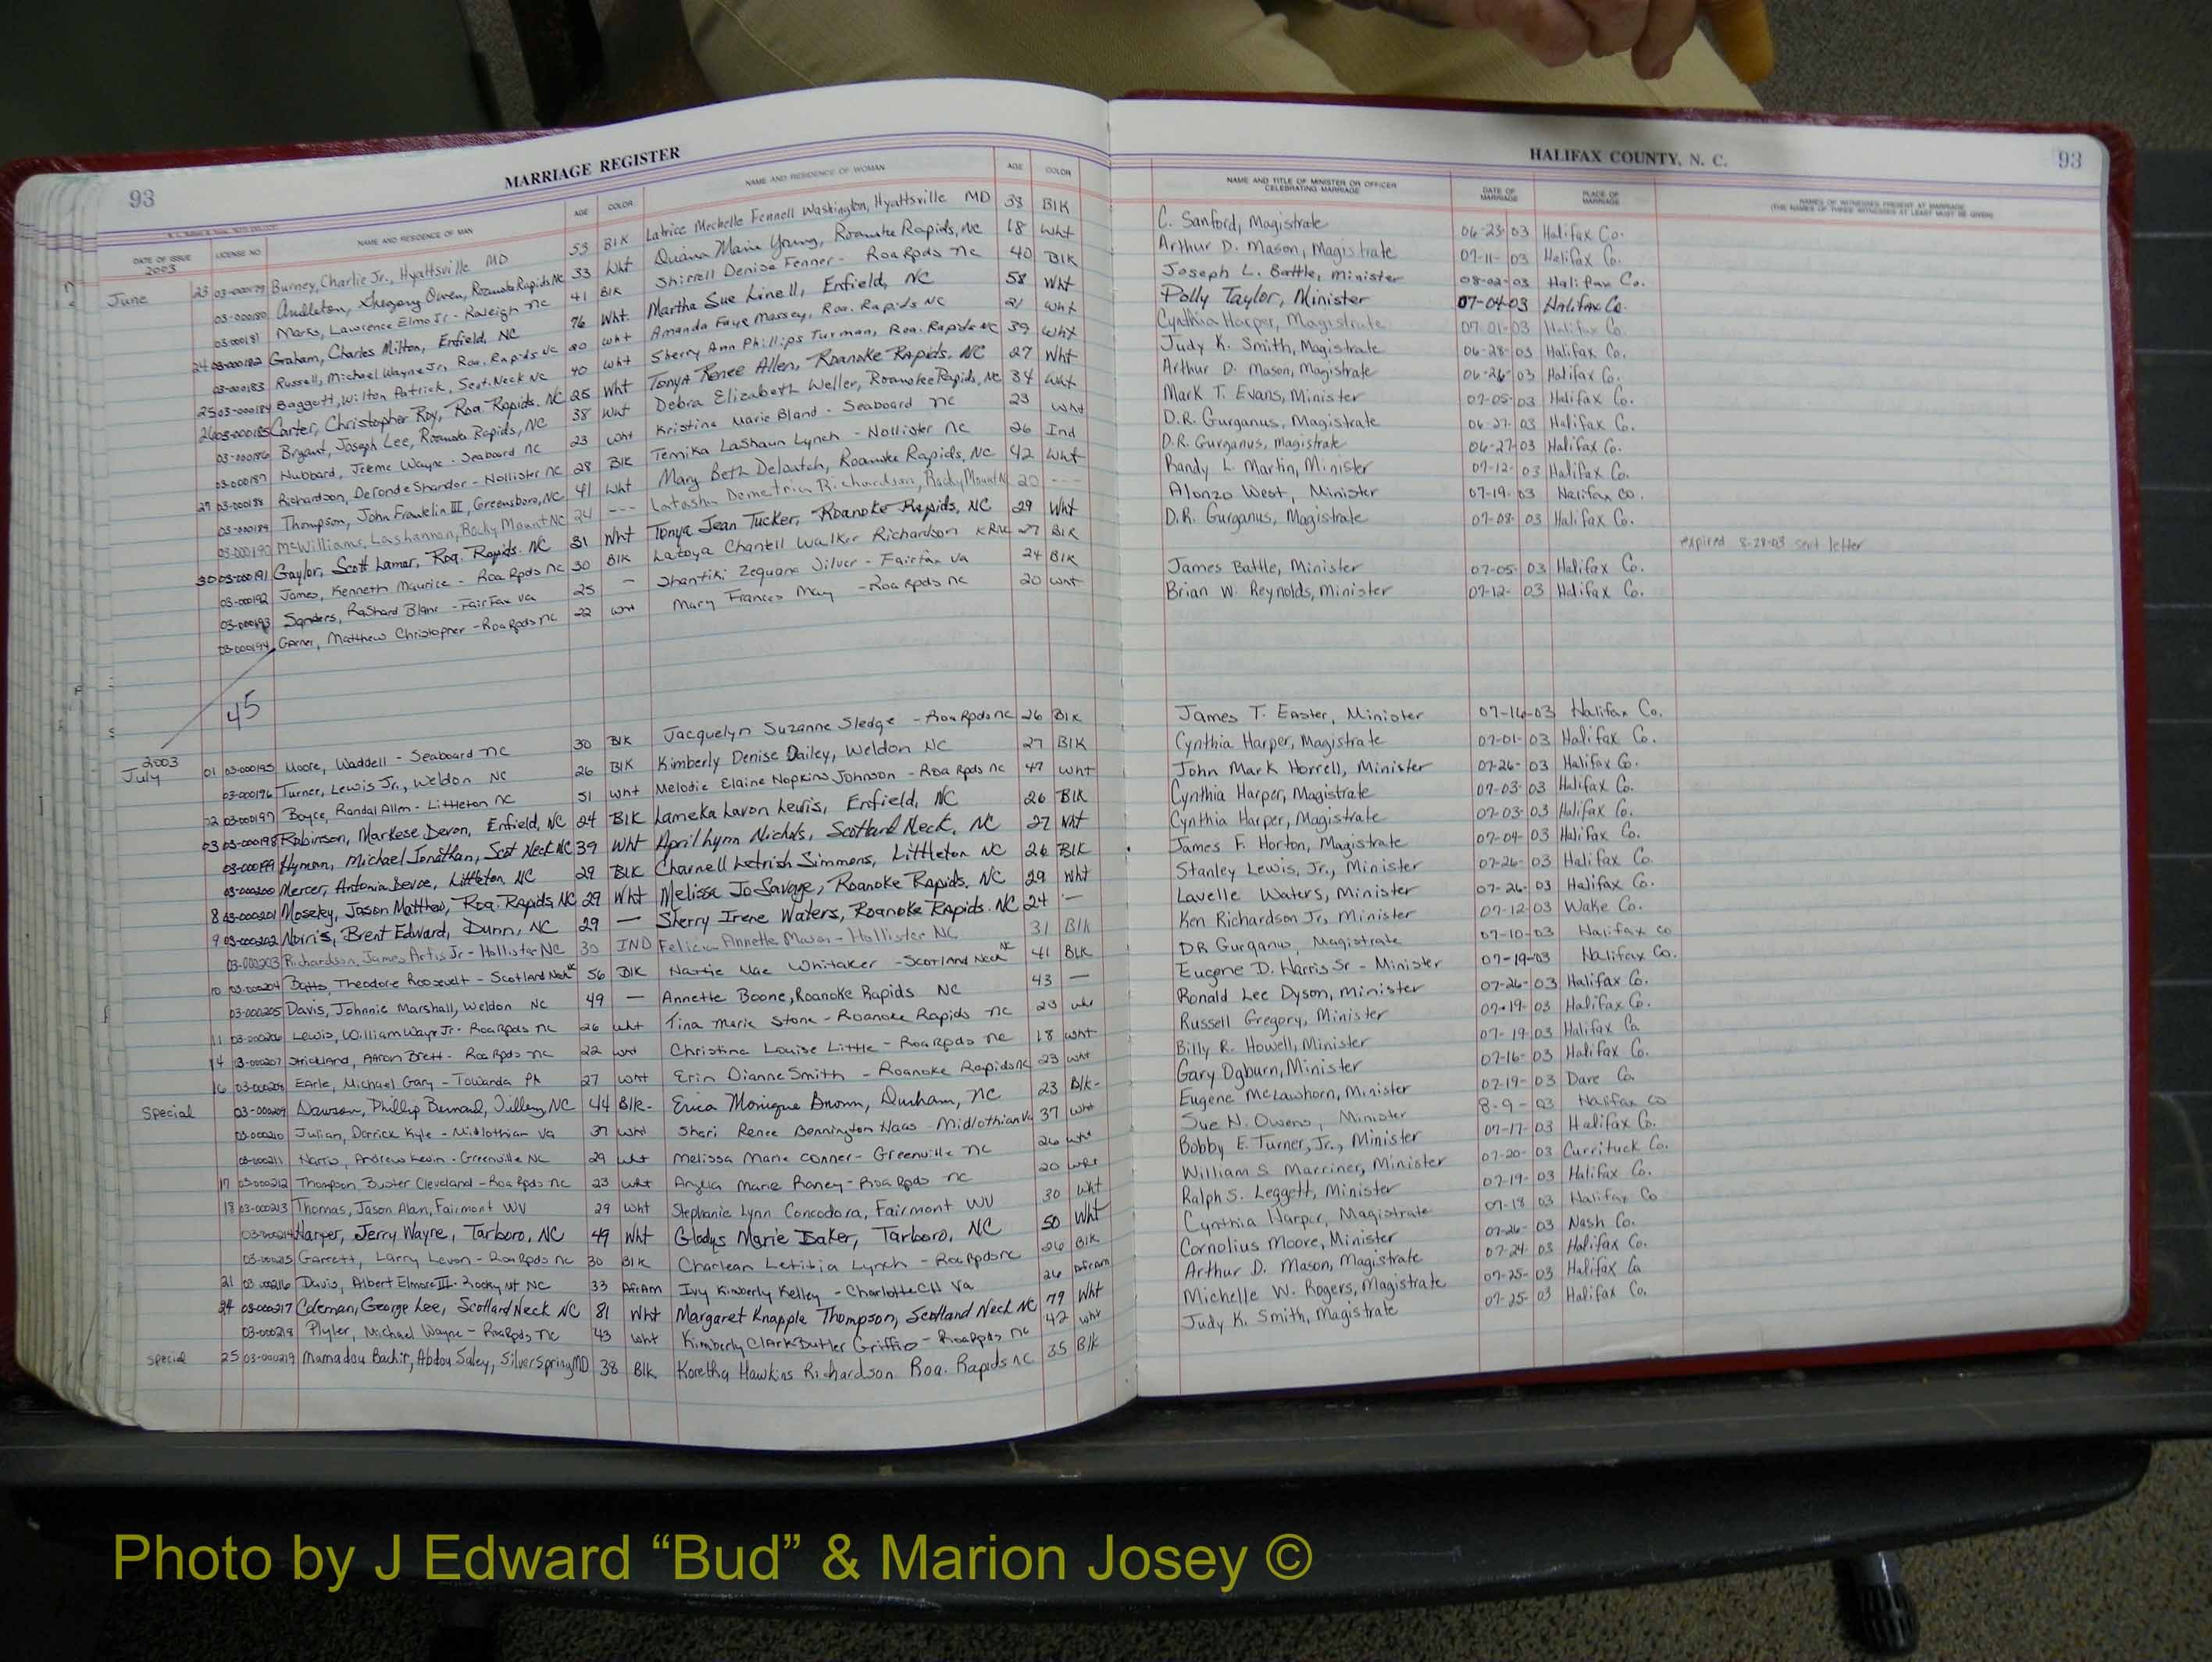 93 MARRIAGE REGISTER HALIFAX COUNTY, N. C. 93
DATE OF ISSUE LICENSE NO. NAME AND RESIDENCE OF MAN AGE COLOR NAME AND RESIDENCE OF WOMAN AGE COLOR NAME AND TITLE OF MINISTER OR OFFICER CELEBRATING MARRIAGE DATE OF MARRIAGE PLACE OF MARRIAGE NAMES OF WITNESSES PRESENT AT MARRIAGE (THE NAMES OF THREE WITNESSES AT LEAST MUST BE GIVEN)
2003
June 23 03-000179 Burney, Charlie Jr., Hyattsville MD 53 Blk Latrice Mechelle Fennell Washington, Hyattsville MD 38 Blk C. Sanford, Magistrate 06-23-03 Halifax Co.
03-000180 Owen, Roanoke Rapids NC 33 Wht Quiana Marie Young, Roanoke Rapids, NC 18 Wht Arthur D. Mason, Magistrate 07-11-03 Halifax Co.
03-000181 Marks, Lawrence Elmo Jr - Raleigh NC 41 Blk Shirrell Denise Fenner - Roa Rpds NC 40 Blk Joseph L. Battle, Minister 08-02-03 Halifax Co.
24 03-000182 Graham, Charles Milton, Enfield, NC 76 Wht Martha Sue Linell, Enfield, NC 58 Wht Polly Taylor, Minister 07-04-03 Halifax Co.
03-000183 Russell, Michael Wayne Jr, Roa. Rapids NC 20 Wht Amanda Faye Massey, Roa. Rapids NC 21 Wht Cynthia Harper, Magistrate 07-01-03 Halifax Co.
25 03-000184 Baggett, Wilton Patrick, Scot. Neck NC 40 Wht Sherry Ann Phillips Turman, Roa. Rapids NC 39 Wht Judy K. Smith, Magistrate 06-28-03 Halifax Co.
26 03-000185 Carter, Christopher Roy, Roa. Rapids. NC 25 Wht Tonya Renee Allen, Roanoke Rapids. NC 27 Wht Arthur D. Mason, Magistrate 06-26-03 Halifax Co.
03-000186 Bryant, Joseph Lee, Roanoke Rapids, NC 38 Wht Debra Elizabeth Weller, Roanoke Rapids, NC 34 Wht Mark T. Evans, Minister 07-05-03 Halifax Co.
03-000187 Hubbard, Wayne - Seaboard NC 23 Wht Kristina Marie Bland - Seaboard NC 23 Wht D.R. Gurganus, Magistrate 06-27-03 Halifax Co.
27 03-000188 Richardson, DeRonde Shandor - Hollister NC 28 Blk Temika LaShaun Lynch - Hollister NC 26 Ind D.R. Gurganus, Magistrate 06-27-03 Halifax Co.
03-000189 Thompson, John Franklin III, Greensboro, NC 41 Wht Mary Beth Deloatch, Roanoke Rapids, NC 42 Wht Randy L. Martin, Minister 07-12-03 Halifax Co.
03-000190 McWilliams, Lashannon, Rocky Mount NC 24 --- Latasha Demetria Richardson, Rocky Mount N 20 --- Alonzo West, Minister 07-19-03 Halifax Co.
30 03-000191 Gaylor, Scott Lamar, Roa. Rapids. NC 31 Wht Tonya Jean Tucker, Roanoke Rapids, NC 29 Wht D.R. Gurganus, Magistrate 07-08-03 Halifax Co.
03-000192 James, Kenneth Maurice - Roa Rpds NC 30 Blk Latoya Chantell Walker Richardson 27 Blk expired 8-28-03 sent letter
03-000193 Sanders, Rashard Blane - Fairfax Va 25 — Shantiki Zequana Silver - Fairfax Va 24 Blk James Battle, Minister 07-05-03 Halifax Co.
03-000194 Garner, Matthew Christopher - Roa Rpds NC 22 Wht Mary Frances May - Roa Rpds NC 20 Wht Brian W. Reynolds, Minister 07-12-03 Halifax Co.
45
2003
July 01 03-000195 Moore, Waddell - Seaboard NC 30 Blk Jacquelyn Suzanne Sledge - Roa Rpds NC 26 Blk James T. Easter, Minister 07-16-03 Halifax Co.
03-000196 Turner, Lewis Jr., Weldon NC 26 Blk Kimberly Denise Dailey, Weldon NC 27 Blk Cynthia Harper, Magistrate 07-01-03 Halifax Co.
02 03-000197 Boyce, Randal Allen - Littleton NC 51 Wht Melodie Elaine Hopkins Johnson - Roa Rpds NC 47 Wht John Mark Horrell, Minister 07-26-03 Halifax Co.
03 03-000198 Robinson, Markese Devon, Enfield, NC 24 Blk Lameka Lavon Lewis, Enfield, NC 26 Blk Cynthia Harper, Magistrate 07-03-03 Halifax Co.
03-000199 Hyman, Michael Jonathan, Scot Neck NC 39 Wht April Lynn Nichols, Scotland Neck, NC 27 Wht Cynthia Harper, Magistrate 07-03-03 Halifax Co.
03-000200 Mercer, Antonia Devoe, Littleton, NC 29 Blk Charnell Letrish Simmons, Littleton NC 26 Blk James F. Horton, Magistrate 07-04-03 Halifax Co.
8 03-000201 Moseley, Jason Matthew, Roa. Rapids, NC 29 Wht Melissa Jo Savage, Roanoke Rapids, NC 29 Wht Stanley Lewis, Jr., Minister 07-26-03 Halifax Co.
9 03-000202 Norris, Brent Edward, Dunn, NC 29 — Sherry Irene Waters, Roanoke Rapids. NC 24 — Lavelle Waters, Minister 07-26-03 Halifax Co.
03-000203 Richardson, James Artis Jr - Hollister NC 30 IND Felicia Annette Mason - Hollister NC 31 Blk Ken Richardson Jr, Minister 07-12-03 Wake Co.
10 03-000204 Batts, Theodore Roosevelt - Scotland Neck NC 56 Blk Hattie Mae Whitaker - Scotland Neck NC 41 Blk DR Gurganus, Magistrate 07-10-03 Halifax Co
03-000205 Davis, Johnnie Marshall, Weldon NC 49 — Annette Boone, Roanoke Rapids NC 43 — Eugene D. Harris Sr - Minister 07-19-03 Halifax Co.
11 03-000206 Lewis, William Wayne Jr - Roa Rpds NC 26 Wht Tina Marie Stone - Roanoke Rapids NC 23 Wht Ronald Lee Dyson, Minister 07-26-03 Halifax Co.
14 03-000207 Strickland, Aaron Brett - Roa Rpds NC 22 Wht Christina Louise Little - Roa Rpds NC 18 Wht Russell Gregory, Minister 07-19-03 Halifax Co.
16 03-000208 Earle, Michael Gary - Towanda PA 27 Wht Erin Dianne Smith - Roanoke Rapids NC 23 Wht Billy R. Howell, Minister 07-19-03 Halifax Co.
Special 03-000209 Dawson, Phillip Bernard, Tillery, NC 44 Blk- Erica Monique Brown, Durham, NC 23 Blk- Gary Ogburn, Minister 07-16-03 Halifax Co.
03-000210 Julian, Derrick Kyle - Midlothian Va 37 Wht Sheri Renee Bennington Haas - Midlothian Va 37 Wht Eugene McLawhorn, Minister 07-19-03 Dare Co.
03-000211 Harris, Andrew Kevin - Greenville NC 29 Wht Melissa Marie Conner - Greenville NC 26 Wht Sue N. Owens, Minister 8-9-03 Halifax Co
17 03-000212 Thompson, Buster Cleveland - Roa Rpds NC 23 Wht Angelia Marie Raney - Roa Rpds NC 20 Wht Bobby E. Turner, Jr., Minister 07-17-03 Halifax Co.
18 03-000213 Thomas, Jason Alan, Fairmont WV 29 Wht Stephanie Lynn Concodora, Fairmont WV 30 Wht William S. Marriner, Minister 07-20-03 Currituck Co.
03-000214 Harper, Jerry Wayne, Tarboro, NC 49 Wht Gladys Marie Baker, Tarboro, NC 50 Wht Ralph S. Leggett, Minister 07-19-03 Halifax Co.
03-000215 Garrett, Larry Levon - Roa Rpds NC 30 Blk Charlean Letitia Lynch - Roa Rpds NC 26 Blk Cynthia Harper, Magistrate 07-18-03 Halifax Co
21 03-000216 Davis, Albert Elmore III - Rocky Mt NC 33 Afram Ivy Kimberly Kelley - Charlotte CH Va 26 Afram Cornolius Moore, Minister 07-26-03 Nash Co.
24 03-000217 Coleman, George Lee, Scotland Neck NC 81 Wht Margaret Knapple Thompson, Scotland Neck NC 79 Wht Arthur D. Mason, Magistrate 07-24-03 Halifax Co.
03-000218 Plyler, Michael Wayne - Roa Rpds NC 43 Wht Kimberly Clark Butler Griffin - Roa Rpds NC 42 Wht Michelle W. Rogers, Magistrate 07-25-03 Halifax Co
Special 25 03-000219 Mamadou Bachir, Abdou Saley, Silver Spring MD 38 Blk Koretha Hawkins Richardson Roa. Rapids NC 35 Blk Judy K. Smith, Magistrate 07-25-03 Halifax Co.
Photo by J Edward “Bud” & Marion Josey ©